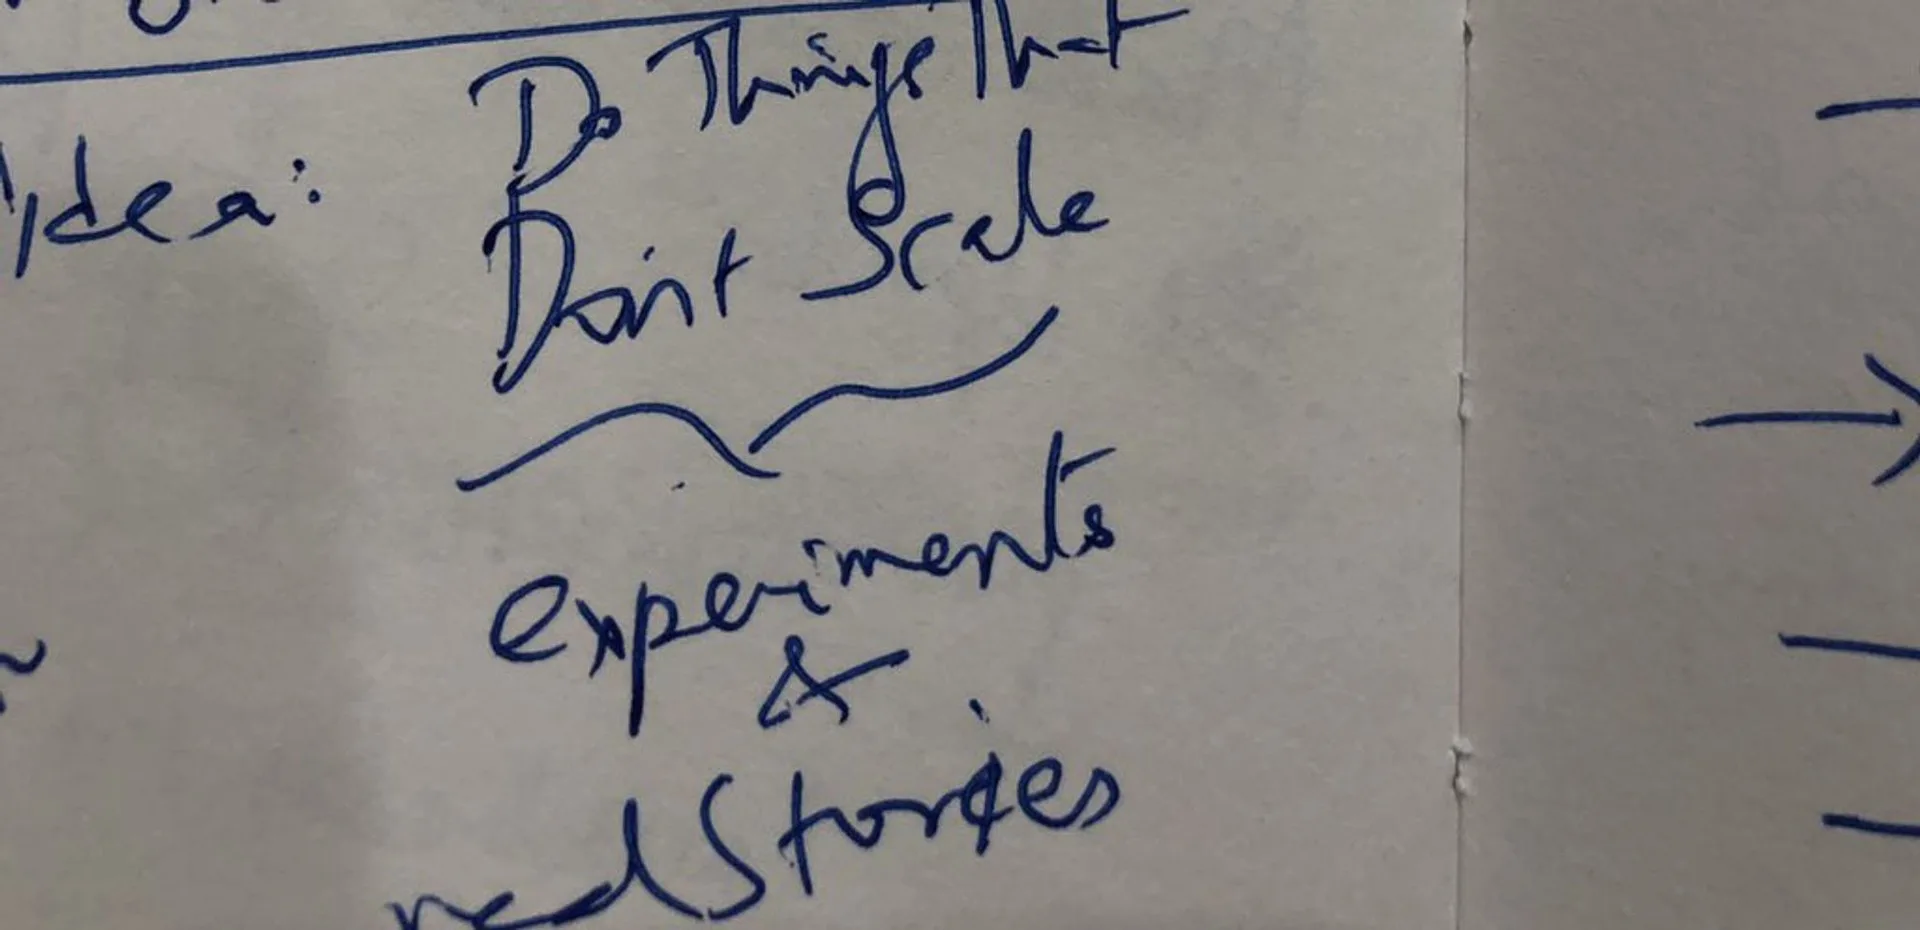 Idea: Do Things That
Don't Scale
experiments
&
Stories